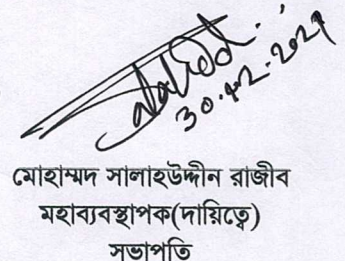 30.12.2021
মোহাম্মদ সালাহউদ্দীন রাজীব
মহাব্যবস্থাপক(দায়িত্বে)
সভাপতি